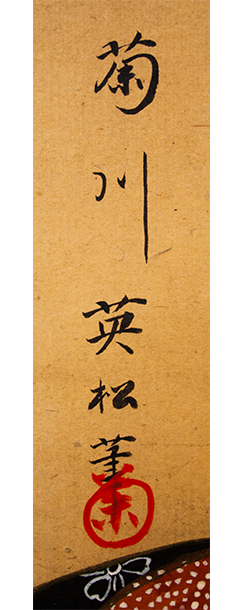 菊川英松筆